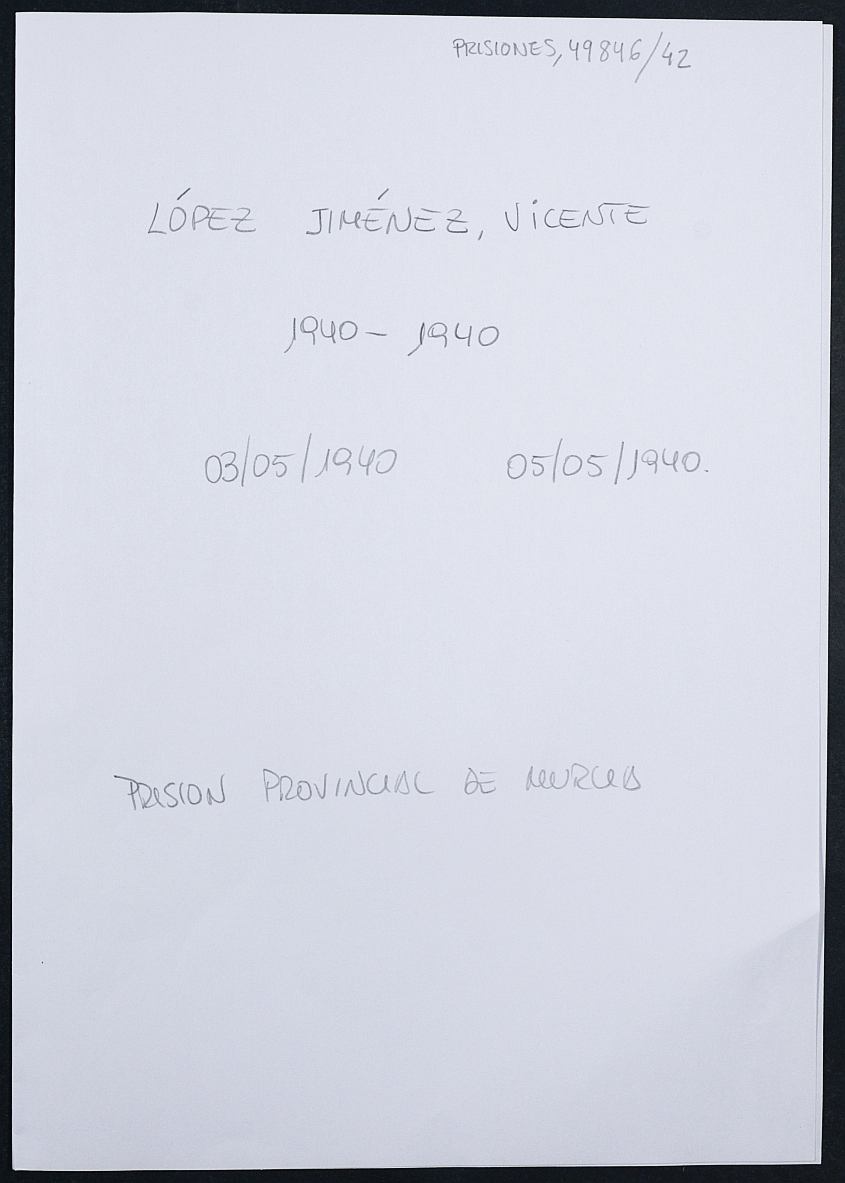 PRISIONES, 49846/42
LÓPEZ JIMÉNEZ, VICENTE
1940 - 1940
03/05/1940 05/05/1940.
PRISION PROVINCIAL DE MURCIA